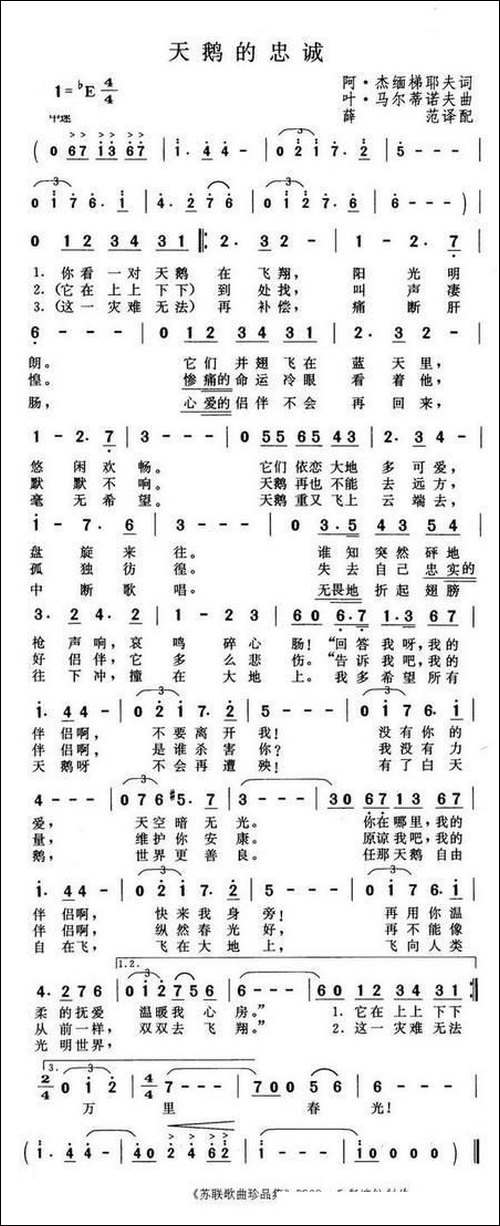 天鹅的忠诚
1=♭E 4/4
阿·杰缅梯耶夫词
叶·马尔蒂诺夫曲
薛 范译配
中速
( 0 67 13 67 | 1. 44 - | 0 21 7. 2 | 5 - - - |
0 17 6. 1 | 4. 2 76 | 0 12 7. 6 | 6 - - - )
0 12 34 31 ‖: 2. 32 - | 1 - 2. 7 |
1. 你看一对天鹅在飞翔, 阳光明
2.(它在上上下下)到处找, 叫声凄
3.(这一灾难无法)再补偿, 痛断肝
6 - - - | 0 12 34 31 | 2. 32 - |
朗。 它们并翅飞在蓝天里,
惶。 惨痛的命运冷眼看着他,
肠, 心爱的侣伴不会再回来,
1 - 2. 7 | 3 - - - | 0 55 65 43 | 2. 52 - |
悠闲欢畅。 它们依恋大地多可爱,
默默不响。 天鹅再也不能去远方,
毫无希望。 天鹅重又飞上云端去,
1 - 7. 6 | 3 - - - | 0 3.5 43 54 |
盘旋来往。 谁知突然砰地
孤独彷徨。 失去自己忠实的
中断歌唱。 无畏地折起翅膀
3. 24. 2 | 7. 12 - | 60 6.7 1.3 67 |
枪声响,哀鸣碎心肠!“回答我呀,我的
好侣伴,它多么悲伤。“告诉我吧,我的
往下冲,撞在大地上。我多希望所有
1. 44 - | 0 21 7. 2 | 5 - - - | 0 17 6. 1 |
伴侣啊, 不要离开我! 没有你的
伴侣啊, 是谁杀害你? 我没有力
天鹅呀 不会再遭殃! 有了白天
4 - - - | 0 76 #5. 7 | 3 - - - | 30 67 13 67 |
爱, 天空暗无光。 你在哪里,我的
量, 维护你安康。 原谅我吧,我的
鹅, 世界更善良。 任那天鹅自由
1. 44 - | 0 21 7. 2 | 5 - - - | 0 17 6. 1 |
伴侣啊, 快来我身旁! 再用你温
伴侣啊, 纵然春光好, 再不能像
自在飞, 飞在大地上, 飞向人类
1.2.
4. 2 76 | 0 12 7 56 | 6 - - - | 60 12 34 31 :‖
柔的抚爱 温暖我心房。” 1.它在上上下下
从前一样, 双双去飞翔。” 2.这一灾难无法
光明世界,
3.
2/4 0 1 2 | 4/4 7 - - - | 7 00 05 6 | 6 - - - |
万里春光!
( 1. 44 - | 0 2 2 4 62 | 1 - - - | 1 0 0 0 0 )
《苏联歌曲珍品集》